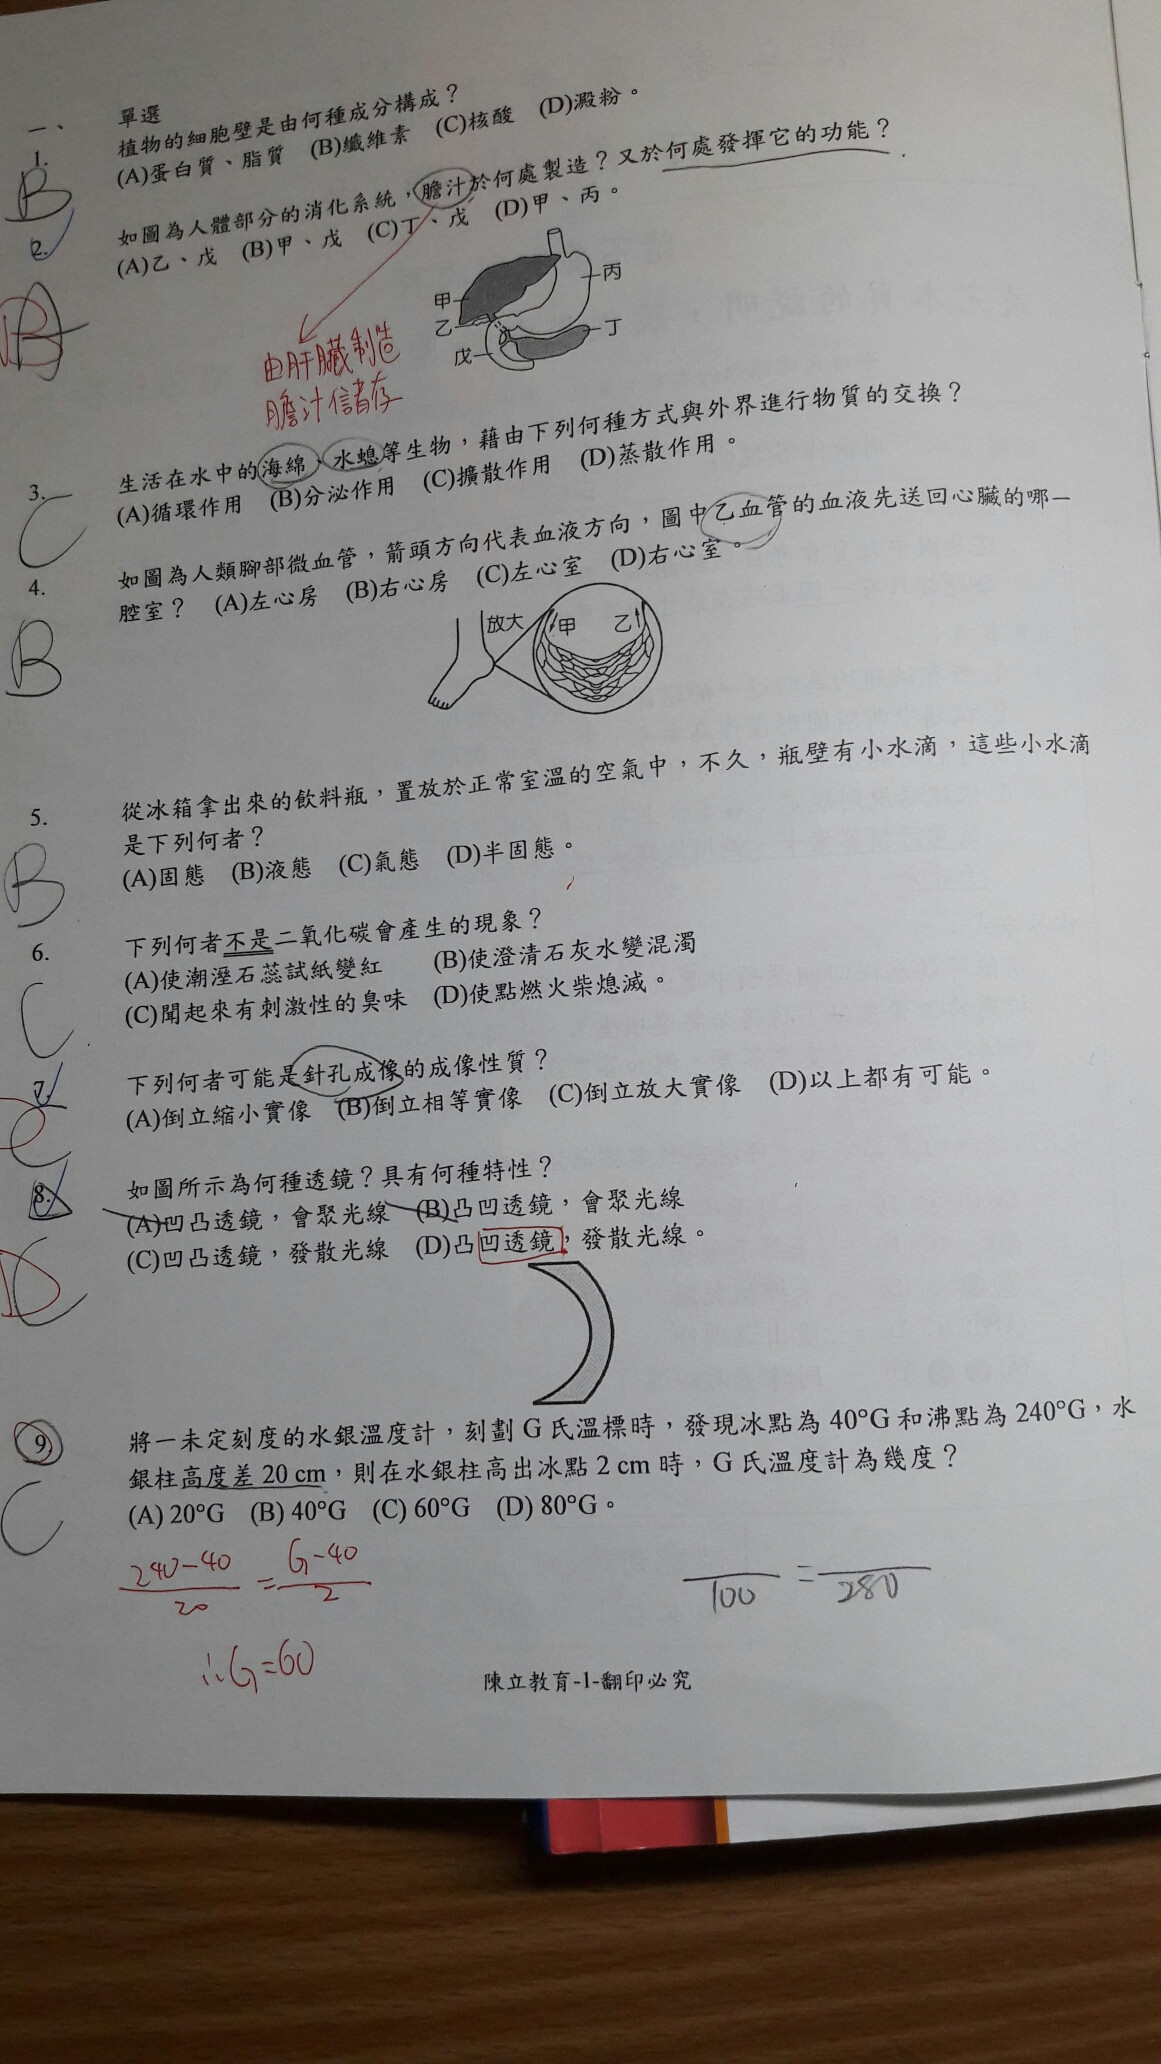 一、 單選
1. 植物的細胞壁是由何種成分構成？
(A)蛋白質、脂質 (B)纖維素 (C)核酸 (D)澱粉。
B
2. 如圖為人體部分的消化系統，膽汁於何處製造？又於何處發揮它的功能？
(A)乙、戊 (B)甲、戊 (C)丁、戊 (D)甲、丙。
B
甲
乙
戊
丙
丁
由肝臟制造
膽汁儲存
3. 生活在水中的海綿、水螅等生物，藉由下列何種方式與外界進行物質的交換？
(A)循環作用 (B)分泌作用 (C)擴散作用 (D)蒸散作用。
C
4. 如圖為人類腳部微血管，箭頭方向代表血液方向，圖中乙血管的血液先送回心臟的哪一
腔室？ (A)左心房 (B)右心房 (C)左心室 (D)右心室。
B
放大
甲 乙
5. 從冰箱拿出來的飲料瓶，置放於正常室溫的空氣中，不久，瓶壁有小水滴，這些小水滴
是下列何者？
(A)固態 (B)液態 (C)氣態 (D)半固態。
B
6. 下列何者不是二氧化碳會產生的現象？
(A)使潮溼石蕊試紙變紅 (B)使澄清石灰水變混濁
(C)聞起來有刺激性的臭味 (D)使點燃火柴熄滅。
C
7. 下列何者可能是針孔成像的成像性質？
(A)倒立縮小實像 (B)倒立相等實像 (C)倒立放大實像 (D)以上都有可能。
C
8. 如圖所示為何種透鏡？具有何種特性？
(A)凹凸透鏡，會聚光線 (B)凸凹透鏡，會聚光線
(C)凹凸透鏡，發散光線 (D)凸凹透鏡，發散光線。
D C
9. 將一未定刻度的水銀溫度計，刻劃 G 氏溫標時，發現冰點為 40°G 和沸點為 240°G，水
銀柱高度差 20 cm，則在水銀柱高出冰點 2 cm 時，G 氏溫度計為幾度？
(A) 20°G (B) 40°G (C) 60°G (D) 80°G。
C
240-40 = G-40
20 2
∴G=60
=
100 280
陳立教育-1-翻印必究